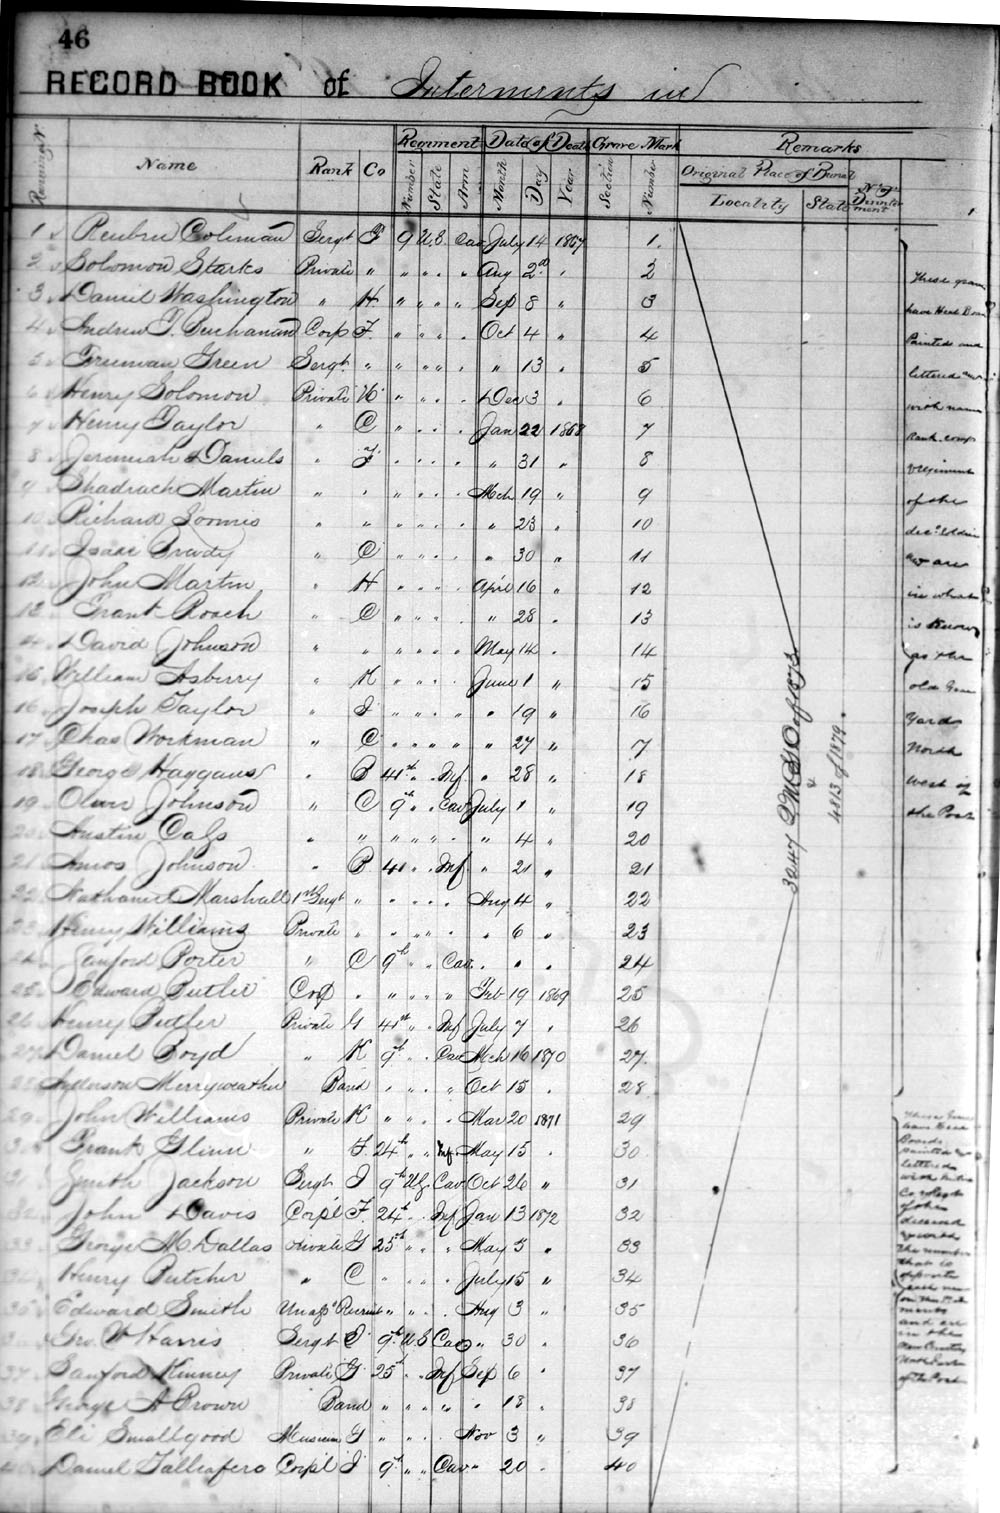 46
RECORD BOOK of Interments in
Running No Name Rank Co Regiment Date of Death Grave Mark Remarks
Number State Arm Month Day Year Section Number Original Place of Burial
Locality State
1 Reuben Coleman Sergt F 9 U.S. Cav July 14 1867 1
2 Solomon Starks Private " " " " " Aug 2d " 2
3 Daniel Washington " H " " " " Sep 8 " 3
4 Andrew J. Buchanan Corp F. " " " " Oct 4 " 4
5 Freeman Green Sergt " " " " " " 13 " 5
6 Henry Solomon Private " " " " Dec 3 " 6
7 Henry Taylor " C " " " " Jan 22 1868 7
8 Jeremiah Daniels " F " " " " " 31 " 8
9 Shadrach Martin " " " " " " Mch 19 " 9
10 Richard Loomis " " " " " " " 23 " 10
11 Isaac Brady " C " " " " " 30 " 11
12 John Martin " H " " " " April 16 " 12
13 Frank Roach " C " " " " " 28 " 13
14 David Johnson " " " " " " May 14 " 14
15 William Asberry " K " " " " June 1 " 15
16 Joseph Taylor " I " " " " " 19 " 16
17 Chas Workman " C " " " " " 27 " 7
18 George Haggans " B 41st " " Inf " 28 " 18
19 Oliver Johnson " C 9th " " Cav July 1 " 19
20 Austin " " " " " " " 4 " 20
21 Amos Johnson " B 41 " " Inf " 21 " 21
22 Nathaniel Marshall 1st Sergt " " " " " Aug 4 " 22
23 Henry Williams Private " " " " " " 6 " 23
24 Sanford Porter " C 9th " " Cav " " " 24
25 Edward Butler Corp " " " " " Feb 19 1869 25
26 Henry Butler Private G 41st " " Inf July 7 " 26
27 Daniel Boyd " K 9th " " Cav Mch 16 1870 27
28 Anderson Merryweather Band " " " " Oct 15 " 28
29 John Williams Private K " " " " Mar 20 1871 29
30 Frank Glinn " F 24th " " Inf May 15 " 30
31 Smith Jackson Sergt I 9th U.S. Cav Oct 26 " 31
32 John Davis Corpl F. 24th " " Inf Jan 13 1872 32
33 George McDallas Private G 25th " " " May 5 " 33
34 Henry Butcher " C " " " " July 15 " 34
35 Edward Smith Unassd Recruit " " " " Aug 3 " 35
36 Geo. W Harris Sergt I 9th U S Cav " 30 " 36
37 Sanford Kinney Private G 25th " " Inf Sep 6 " 37
38 George A Brown Band " " " " " 13 " 38
39 Eli Smallgood Musician G " " " " Nov 3 " 39
40 Daniel Talliafero Corpl I 9th " " Cav " 20 " 40
3047 Q.M.G.O. of 1873
&
4813 of 1879.
These graves
have Head Boards
Painted and
lettered
with name
Rank comp
regiment
of the
decd soldier
are
in what
is known
as the
old Grave
Yard
North
West of
the Post
These Graves
have Head
Boards
painted &
lettered
with
Co & Regt
of the
deceased
the number
that is
opposite
each name
on
and are
in the
New Cemetery
North
of the Post